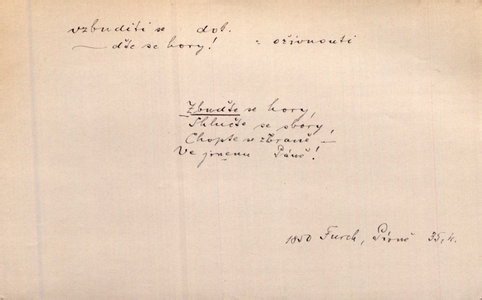 vzbuditi se dok.
— dte se hory! = oživnouti
Zbuďte se hory,
Shlučte se sbory,
Chopte se zbraně —
Ve jmenu Páně!
1850 Furch, Písně 35, 4.